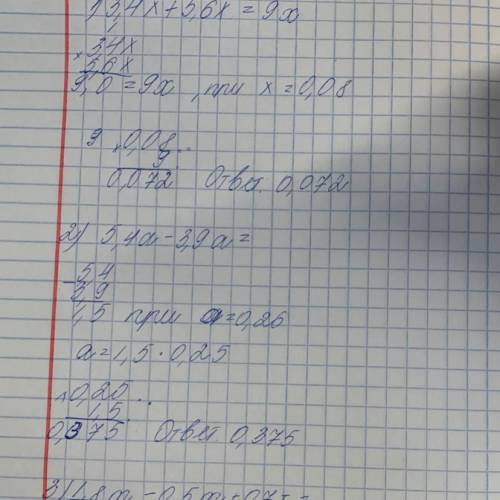 1) 3,4x + 5,6x = 9x
3,4x
5,6x
9,0 = 9x, при x = 0,08
9 0,08
9
0,072 Ответ. 0,072
2) 5,4a - 3,9a =
5,4
3,9
1,5 при a = 0,25
a = 1,5 · 0,25
0,25
1,5
0,375 Ответ 0,375